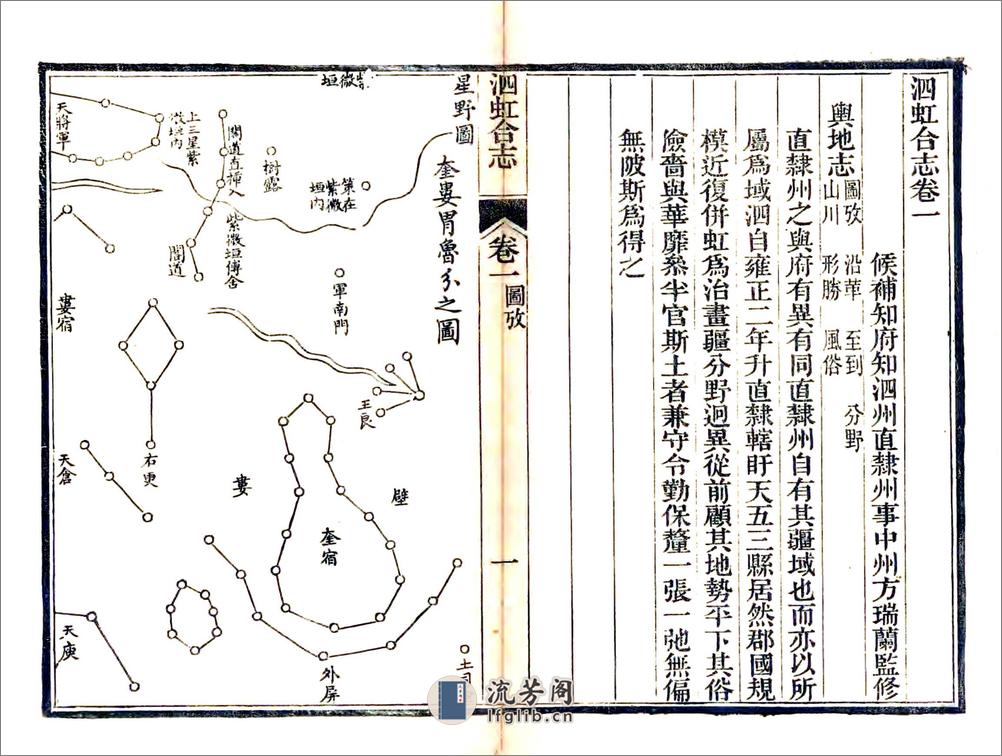 泗虹合志卷一
候補知府知泗州直隸州事中州方瑞蘭監修
輿地志
圖攷 沿革 至到 分野
山川 形勝 風俗
直隸州之與府有異有同直隸州自有其疆域也而亦以所
屬爲域泗自雍正二年升直隸轄盱天五三縣居然郡國規
模近復併虹爲治畫疆分野迥異從前顧其地勢平下其俗
儉嗇與華靡叅半官斯土者兼守令勤保釐一張一弛無偏
無陂斯爲得之
泗虹合志
卷一
圖攷
一
星野圖
奎婁胃魯分之圖
紫微垣
策在紫微垣內
樹露
閣道直揷入
紫微垣傳舍
上三星紫微垣內
天將軍
閣道
軍南門
婁宿
王良
右更
天倉
婁
壁
奎宿
天庾
外屏
土司
流芳阁
lfglib.cn